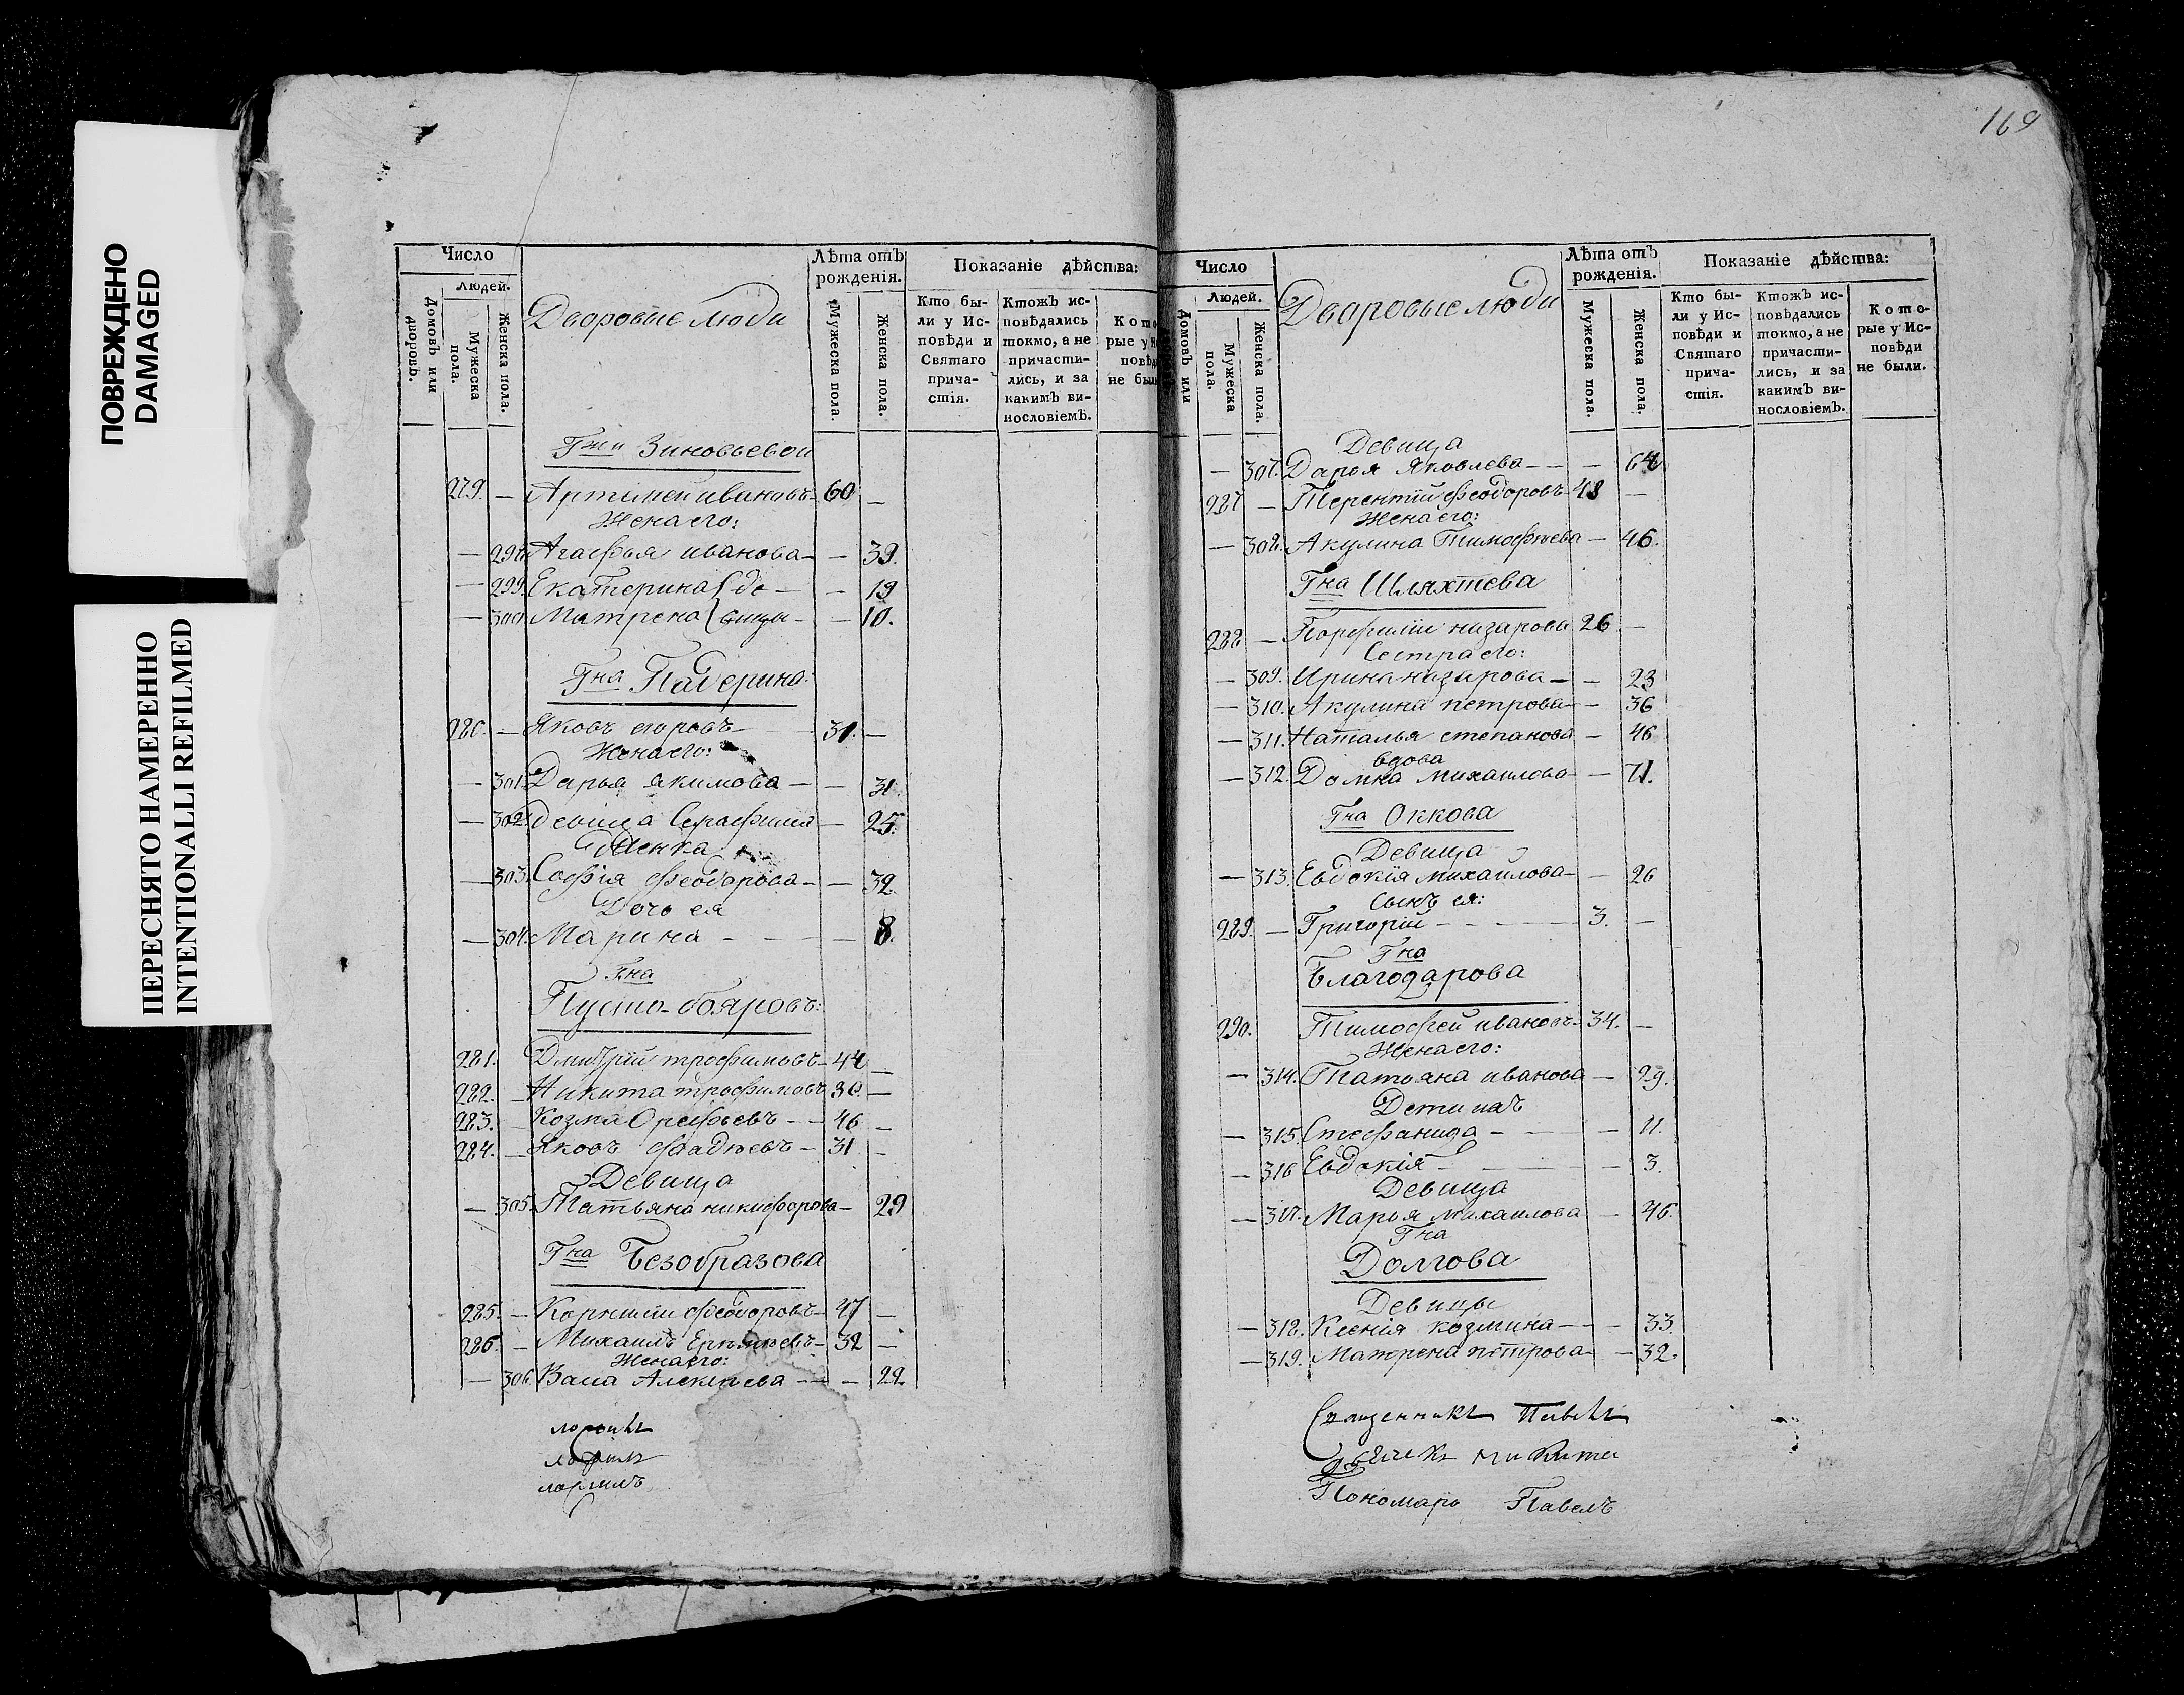 ПОВРЕЖДЕНО
DAMAGED
ПЕРЕСНЯТО НАМЕРЕННО
INTENTIONALLI REFILMED
Число
Людей.
Домовъ или дворовъ.
Мужеска пола.
Женска пола.
Дворовые люди
Лѣта отъ рожденія.
Мужеска пола.
Женска пола.
Показаніе дѣйства:
Кто бы-
ли у Ис-
повѣди и
Святаго
прича-
стія.
Ктожъ ис-
повѣдались
токмо, а не
причасти-
лись, и за
какимъ ви-
нословіемъ.
Кото
рые у И
повѣд
не был
Гжи Зиновьевой
279. — Артимей ивановъ — 60 —
Жена его:
— 298. Агафья иванова — — 39.
— 299. Екатерина де — — 19
— 300. Матрена вицы — — 10.
Гна Падерина:
280. — Яковъ егоровъ — 31. —
Жена его:
— 301. Дарья якимова — — 31.
— 302. девица Серафима — 25.
Женка
— 303. Софія феодорова — — 32.
Дочь ея
— 304. Марина — — — 8.
Гна
Пусто-бояровъ:
281. Дмитрій трофимовъ — 44 —
282. — Никита трофимовъ 36. —
283. — Козма Орефьевъ — — 46 —
284. — Яковъ фадѣевъ — 31 —
Девица
— 305. Татьяна никифорова — 29
Гна Безобразова
285. — Корнилій феодоровъ — 47 —
286. — Михаилъ — 32 —
Жена его:
— 306. Васа Алексѣева — — 22.
169
Число
Людей.
Домовъ или
Мужеска пола.
Женска пола.
Дворовые люди
Лѣта отъ рожденія.
Мужеска пола.
Женска пола.
Показаніе дѣйства:
Кто бы-
ли у Ис-
повѣди и
Святаго
прича-
стія.
Ктожъ ис-
повѣдались
токмо, а не
причасти-
лись, и за
какимъ ви-
нословіемъ.
Кото-
рые у Ис-
повѣди
не были.
Девица
— 307. Дарья Яковлева — — — 64
287 — Терентій феодоровъ 48 —
Жена его:
— 308. Акулина Тимофѣева — 46.
Гна Шляхтева
288 — назарова 26 —
Сестра его:
— 309. Ирина назарова — — 23
— 310. Акулина петрова — — 36
— 311. Наталья степанова — 46
вдова
— 312. Домна михаилова — — 71.
Гна Оккова
Девица
— 313. Евдокія михайлова — — 26
Сынъ ея:
289. — Григорій — — — 3. —
Гна
Благодарова
290. Тимофей ивановъ — 34. —
Жена его:
— 314. Татьяна иванова — 29.
Дети ихъ
— 315. Стефанида — — — 11.
— 316 Евдокія — — — 3.
Девица
— 317. Марья михаилова — 46.
Гна
Долгова
Девицы
— 318. Ксенія козмина — — — 33.
— 319. Матрена петрова — — 32.
Священникъ Павелъ
никита
Пономарь Павелъ